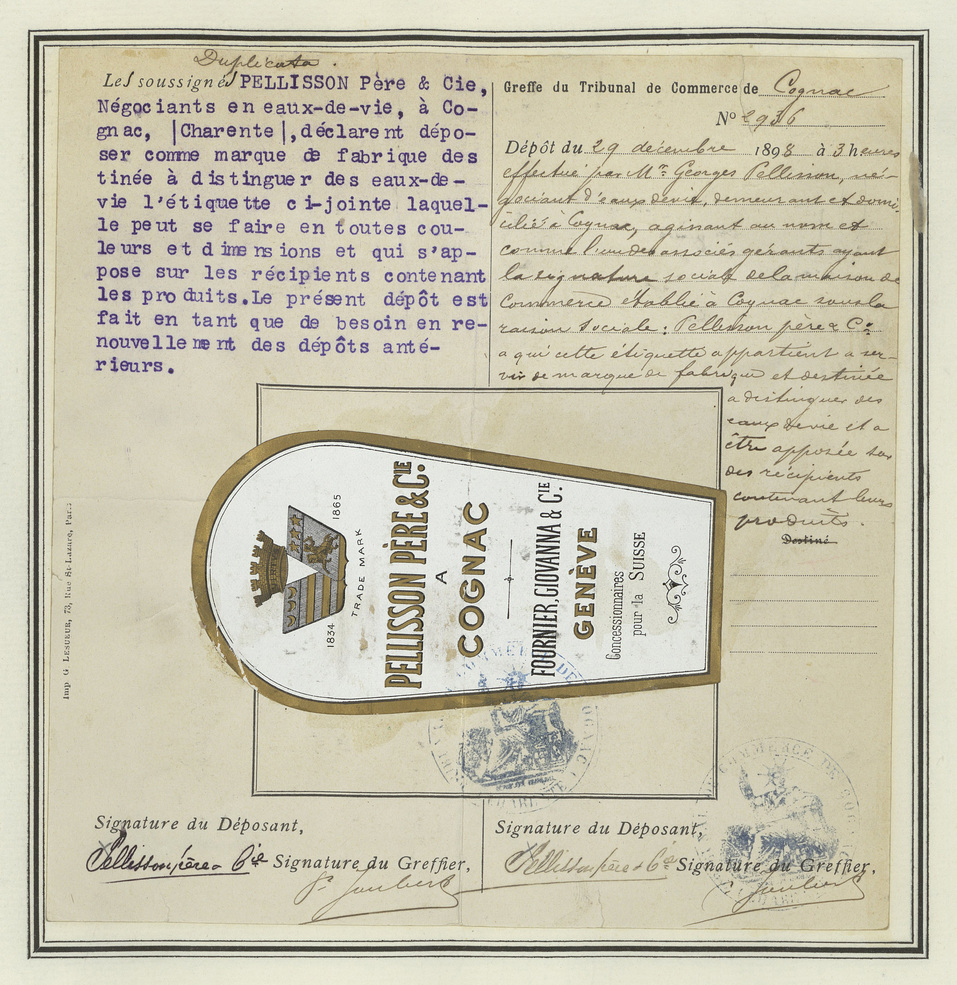 Duplicata.
Les soussignés PELLISSON Père & Cie,
Négociants en eaux-de-vie, à Co-
gnac, |Charente|, déclarent dépo-
ser comme marque de fabrique des
tinée à distinguer des eaux-de-
vie l'étiquette ci-jointe laquel-
le peut se faire en toutes cou-
leurs et dimensions et qui s'ap-
pose sur les récipients contenant
les produits. Le présent dépôt est
fait en tant que de besoin en re-
nouvellement des dépôts anté-
rieurs.
Greffe du Tribunal de Commerce de Cognac
No 2936
Dépôt du 29 décembre 1898 à 3 heures
effectué par Mr Georges Pellisson, né-
gociant d'eaux devie, demeurant et domi-
cilié à Cognac, agissant au nom et
comme l'un des associés gérants ayant
la signature sociale de la maison de
Commerce établie à Cognac sous la
raison sociale : Pellisson père & Cie
a qui cette étiquette appartient a ser-
vir de marque de fabrique et destinée
a distinguer des
eaux devie et a
être apposée sur
des récipients
contenant leurs
produits.
Destiné
1834 TRADE MARK 1865
PELLISSON PÈRE & CIE
A
COGNAC
FOURNIER, GIOVANNA & CIE.
GENÈVE
Concessionnaires
pour la SUISSE
Imp G LESUEUR, 73, Rue St-Lazare, Paris
COMMERCE DE COGNAC
COMMERCE DE COGNAC
Signature du Déposant,
Pellisson père & Cie Signature du Greffier,
Joubert
Signature du Déposant,
Pellisson père & Cie Signature du Greffier,
Joubert